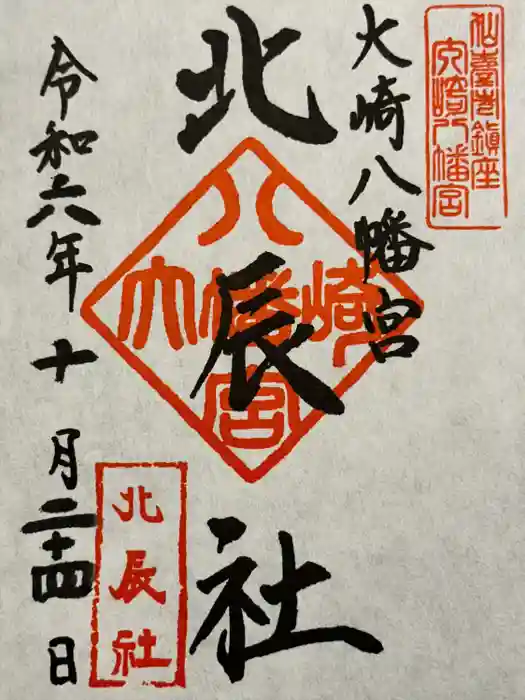 仙臺総鎮座
大崎八幡宮
大崎八幡宮
北辰社
八
大幡崎
宮
北辰社
令和六年十月二十四日